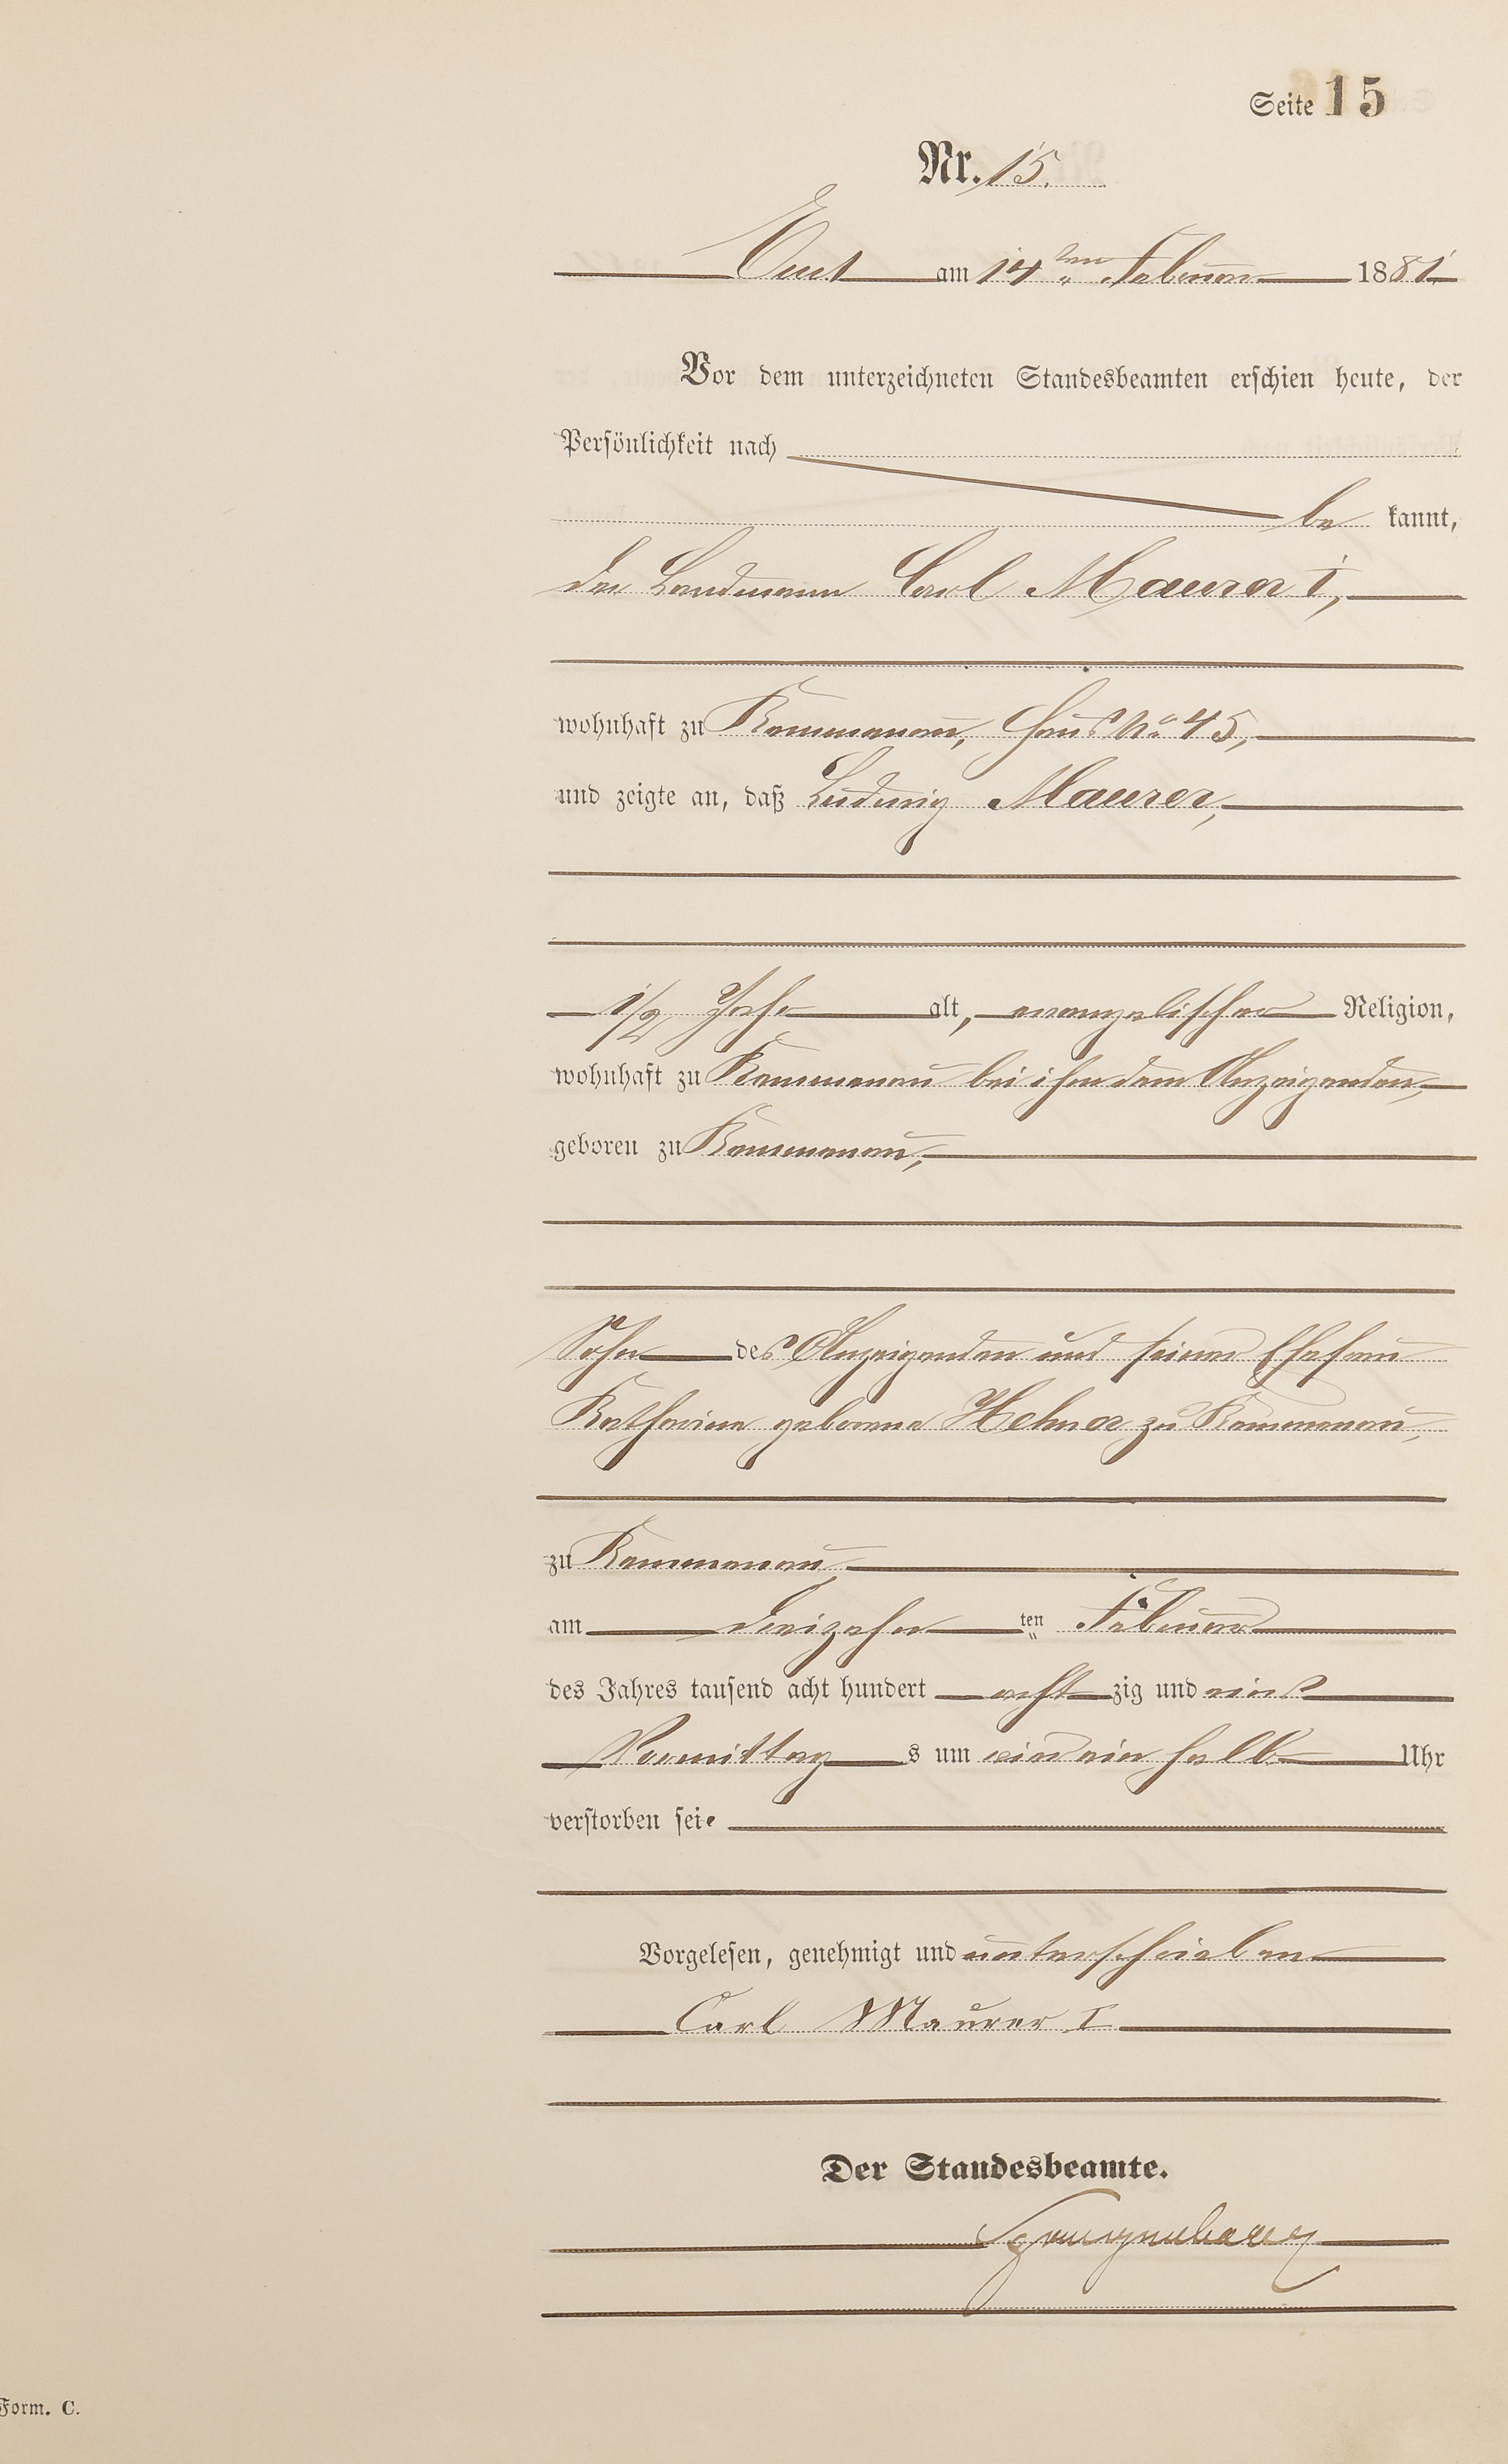 Seite 15
Nr. 15.
am 14ten Februar 1881
Vor dem unterzeichneten Standesbeamten erschien heute, der
Persönlichkeit nach
be kannt,
der Landmann Carl Maurer I,
wohnhaft zu Kemmenau, Haus No 45,
und zeigte an, daß Ludwig Maurer,
1/2 Jahr alt, evangelischer Religion,
wohnhaft zu Kemmenau bei ihm dem Anzeigenden,
geboren zu Kemmenau,
Sohn des Anzeigenden und seiner Ehefrau
Katharina geborene Hehner zu Kemmenau,
zu Kemmenau
am dreizehn ten Februar
des Jahres tausend acht hundert acht zig und eins
Vormittag s um ein ein halb Uhr
verstorben sei.
Vorgelesen, genehmigt und unterschrieben
Carl Maurer I
Der Standesbeamte.
Form. C.